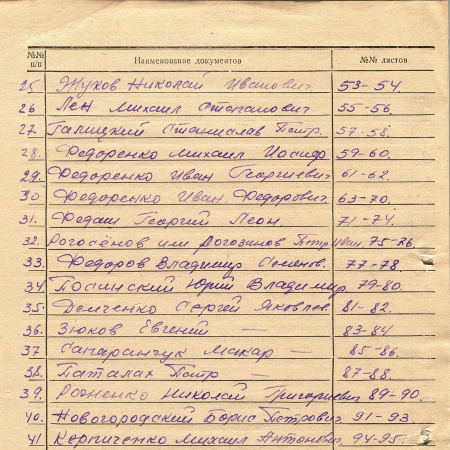 №№ п/п Наименование документов №№ листов
25 Жуков Николай Иванович 53-54.
26 Лен Михаил Степанович 55-56.
27. Галицкий Станислав Петр. 57-58.
28. Федоренко Михаил Иосиф 59-60.
29. Федоренко Иван Георгиевич 61-62.
30 Федоренко Иван Федорович 63-70.
31. Федаш Георгий Леон. 71-74.
32. или Рогозинов Петр Иван 75-76.
33. Федоров Владимир Семенов. 77-78
34 Посинский Юрий Владимир. 79-80.
35. Демченко Сергей Яковлев 81-82.
36. Зюков Евгений — 83-84
37 Сапаранчук Макар — 85-86.
38. Паталах Петр — 87-88.
39. Роженко Николай Григориевич 89-90.
40. Новогородский Борис Петрович 91-93.
41 Кирпиченко Михаил Антонович 94-95.